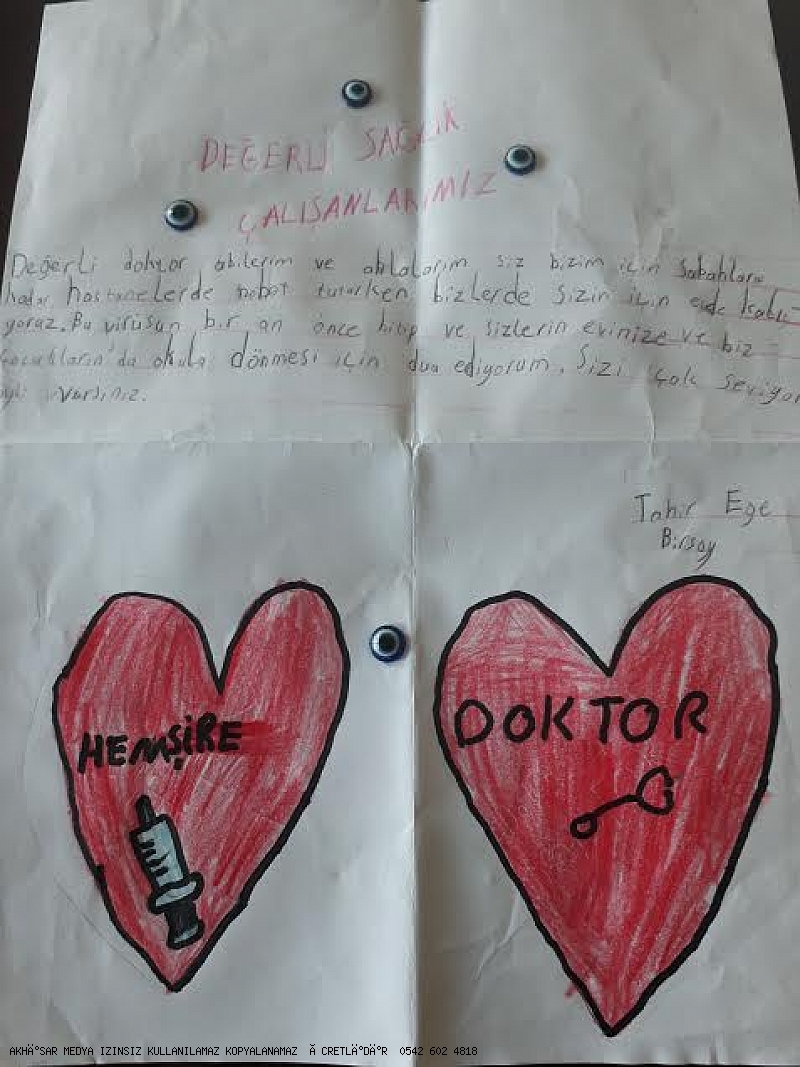 DEĞERLİ SAĞLIK
ÇALIŞANLARIMIZ
Değerli doktor abilerim ve ablalarım siz bizim için sabahlara
kadar hastanelerde nöbet tutarken bizlerde sizin için evde kalı-
yoraz. Bu virüsün bir an önce bitip ve sizlerin evinize ve biz
çocukların'da okula dönmesi için dua ediyorum. Sizi çok seviyor
iyki varsınız.
Tahir Ege
Birsoy
HEMŞİRE
DOKTOR
AKHİSAR MEDYA IZINSIZ KULLANILAMAZ KOPYALANAMAZ Ă CRETLİDİR 0542 602 4818